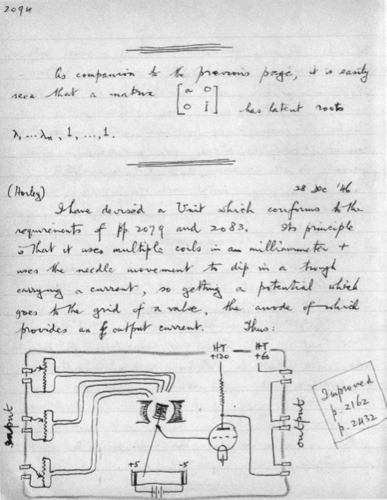 2094
As companion to the previous page, it is easily
seen that a matrix [a 0
0 i] has latent roots
λ1...λn, 1, ..., 1.
(Horley) 28 Dec '46.
I have devised a Unit which conforms to the
requirements of pp 2079 and 2083. Its principle
is that it uses multiple coils in a milliammeter +
uses the needle movement to dip in a trough
carrying a current, so getting a potential which
goes to the grid of a valve, the anode of which
provides an output current. Thus:
HT
+120
HT
+60
input
+5
-5
output
Improved
p. 2162
p. 2432